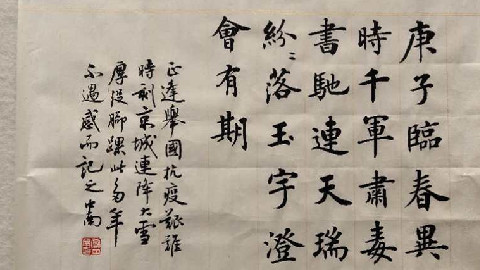 庚子臨春異
時千軍肅毒
書馳連天瑞
紛〻落玉宇澄
會有期
正逢舉國抗疫艱難
時刻京城連降大雪
厚從腳踝此多年
不遇感而記之